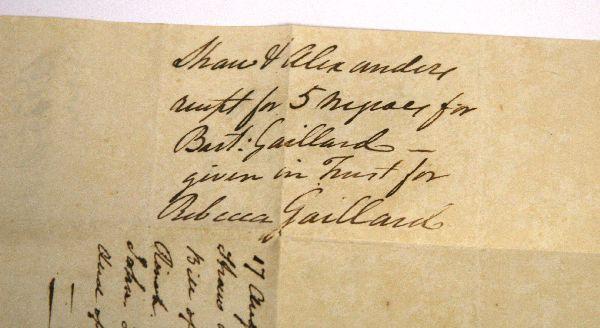 Shaw & Alexanders
recpt for 5 Negroes for
Bart: Gaillard —
given in Trust for
Rebecca Gaillard
17 Aug
Shaw
Bill of
John